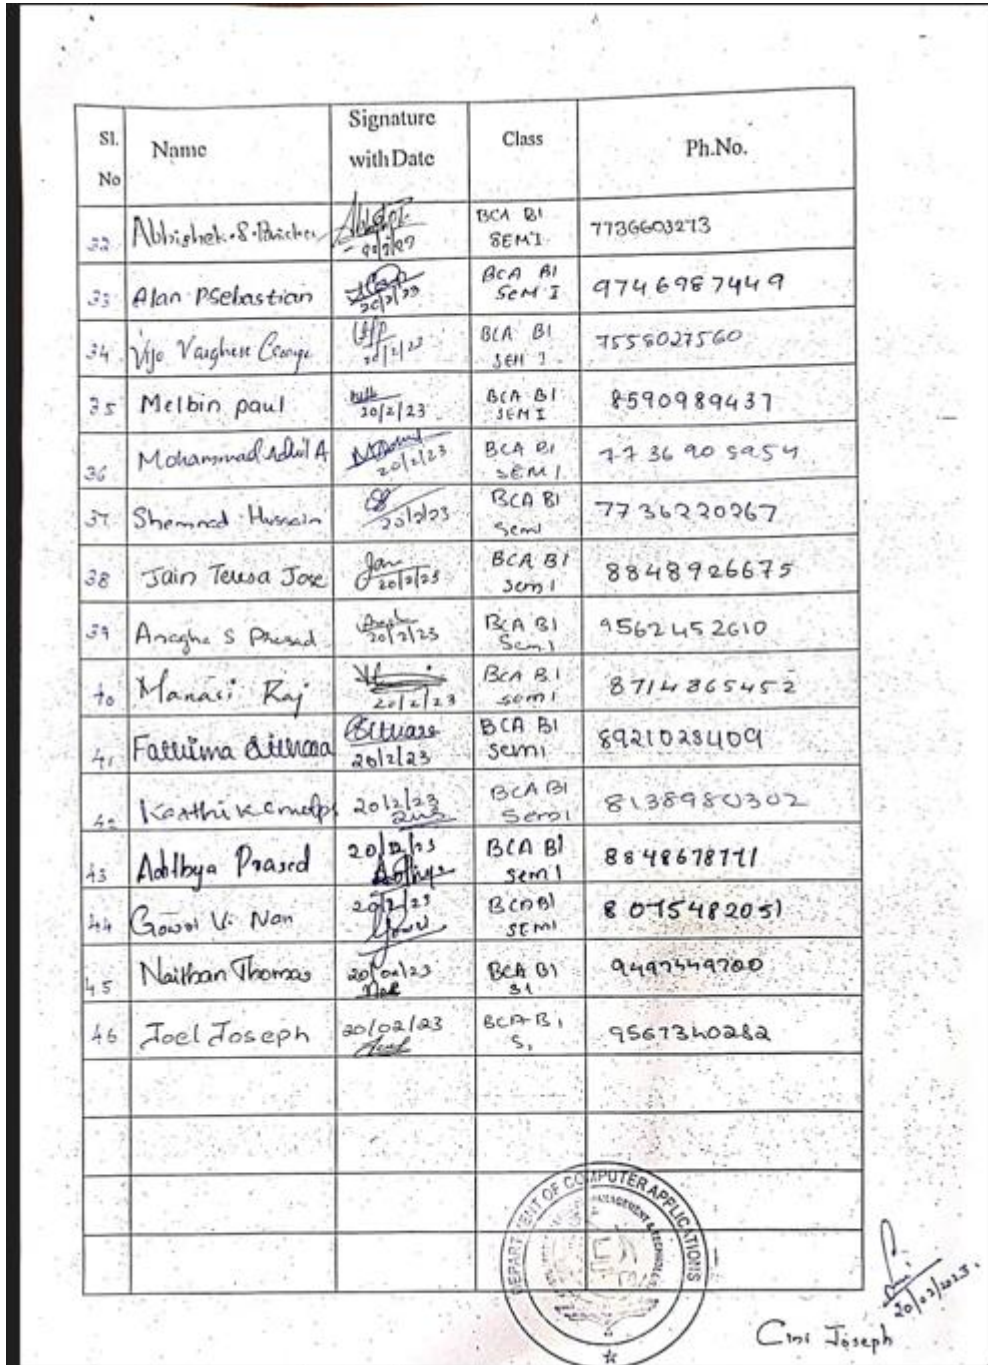 Sl. No Name Signature with Date Class Ph.No.
32 Abhishek.S. BCA BI SEM I 7736603273
33 Alan P Sebastian 20/2/23 BCA BI SEM I 9746987449
34 Vijo Varghese George 20/2/23 BCA BI SEM I 7558027560
35 Melbin paul 20/2/23 BCA BI SEM I 8590989437
36 Mohammad Adhil A 20/2/23 BCA BI SEM I 7736905954
37 Shemnad Hussain 20/2/23 BCA BI Sem I 7736220267
38 Jain Teresa Jose 20/2/23 BCA BI Sem I 8848926675
39 Anagha S Prasad 20/2/23 BCA BI Sem I 9562452610
40 Manasi Raj 20/2/23 BCA BI sem I 8714365452
41 Fathima 20/2/23 BCA BI Sem I 8921028409
42 20/2/23 BCA BI Sem I 8138980302
43 Adithya Prasad 20/2/23 BCA BI Sem I 8848678771
44 20/2/23 BCA BI SEM I 8075482051
45 Naithan Thomas 20/02/23 BCA BI S1 9497549700
46 Joel Joseph 20/02/23 BCA-B1 S1 9567340282
DEPARTMENT OF COMPUTER APPLICATIONS
MANAGEMENT & TECHNOLOGY
20/02/2023.
Cini Joseph